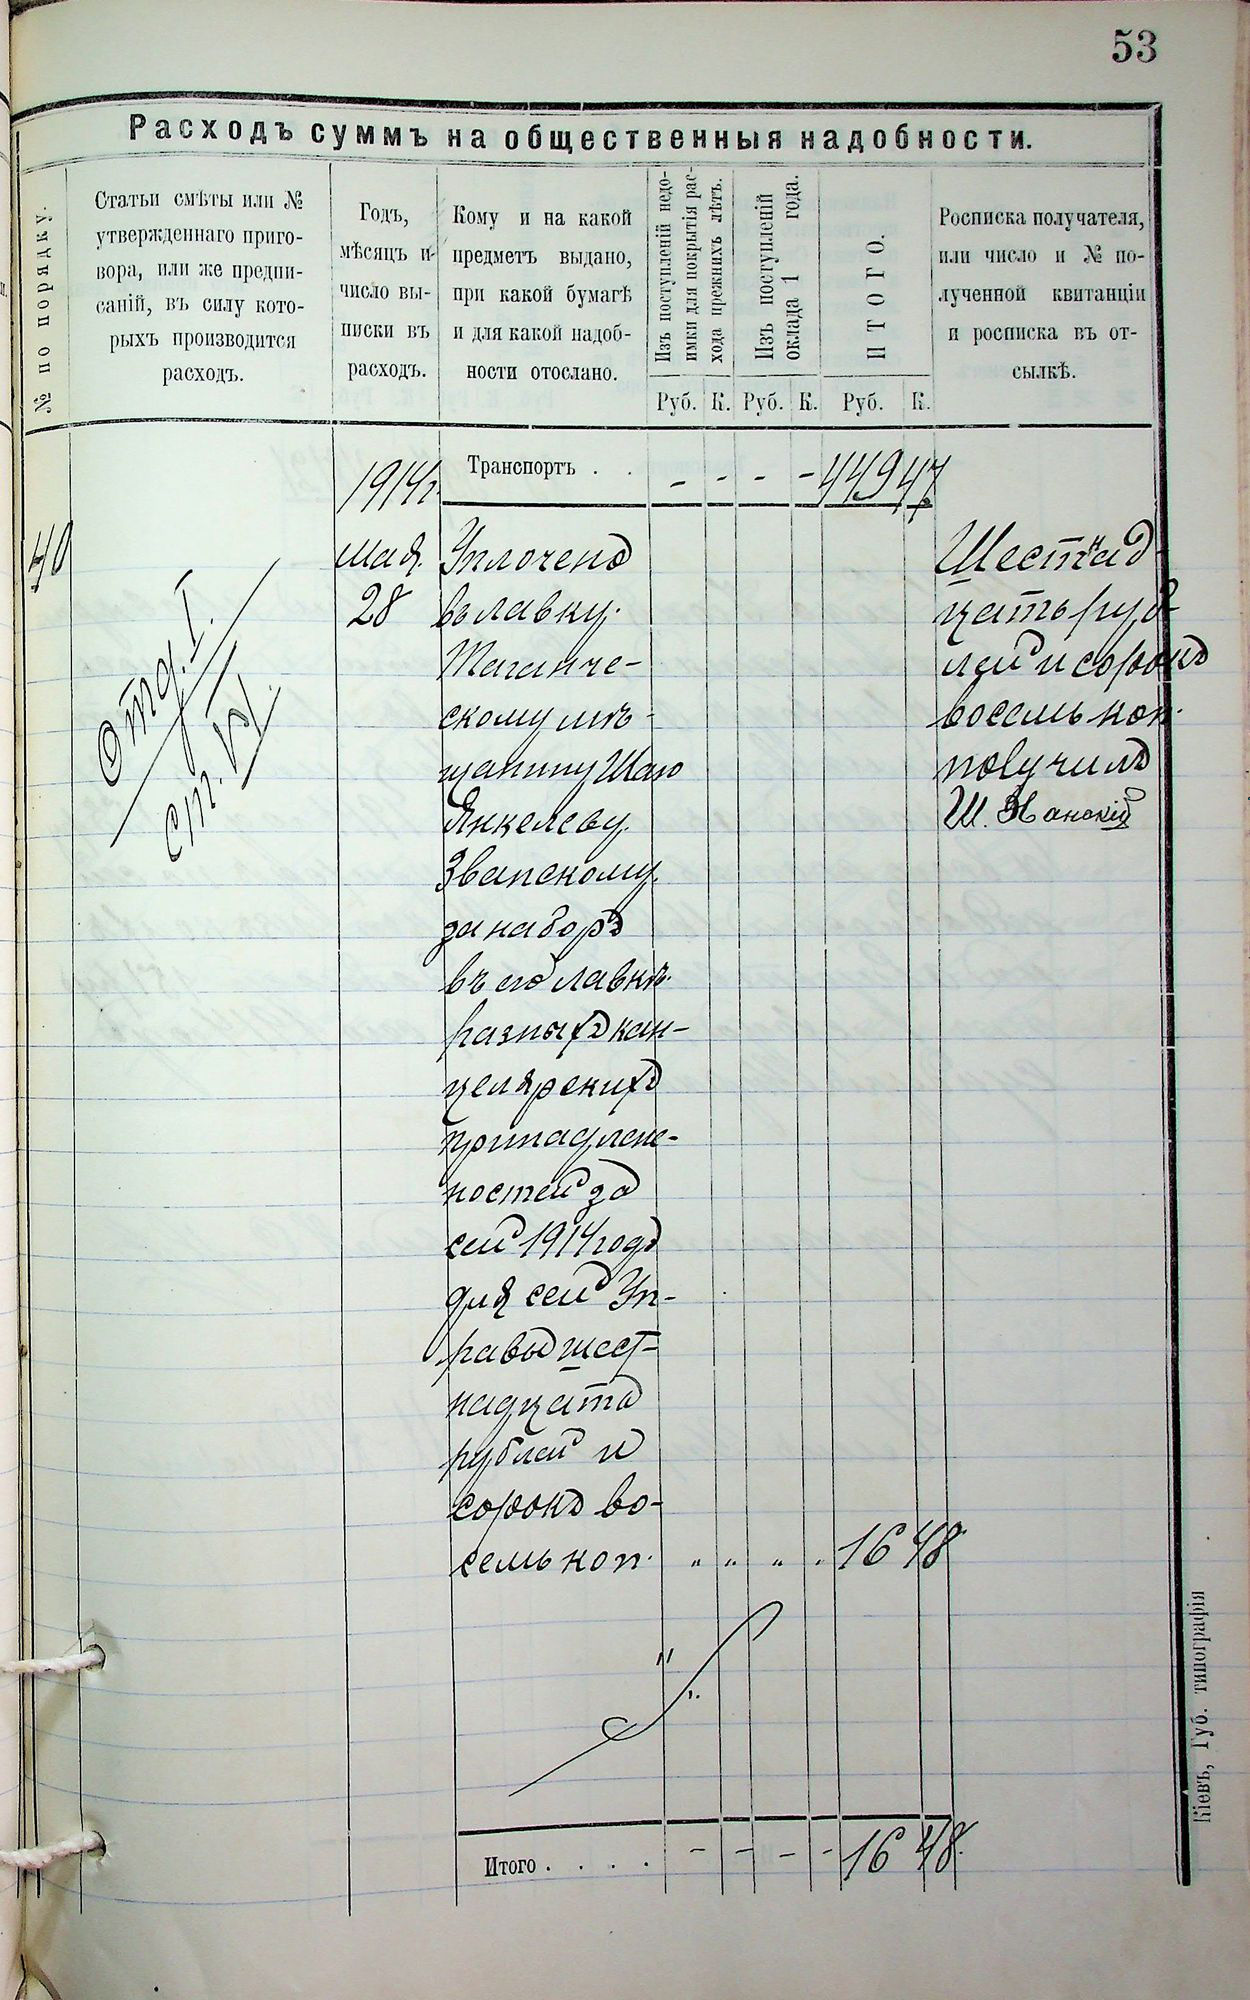 53
Расходъ суммъ на общественныя надобности.
№ по порядку.
Статьи смѣты или №
утвержденнаго приго-
вора, или же предпи-
саній, въ силу кото-
рыхъ производится
расходъ.
Годъ,
мѣсяцъ и
число вы-
писки въ
расходъ.
Кому и на какой
предметъ выдано,
при какой бумагѣ
и для какой надоб-
ности отослано.
Изъ поступленій недо-
имки для покрытія рас-
хода прежнихъ лѣтъ.
Изъ поступленій
оклада 1 года.
ИТОГО.
Росписка получателя,
или число и № по-
лученной квитанціи
и росписка въ от-
сылкѣ.
Руб. К. Руб. К. Руб. К.
1914г. Транспортъ . . - - - - 449 47
40
Отд. I.
ст. VI.
мая
28
Уплочено
въ лавку
Таганче-
скому мѣ-
щанину Шаю
Янкелеву
Званскому
за наборъ
въ его лавкѣ
разныхъ кан-
целярскихъ
принадлеж-
ностей за
сей 1914 годъ
для сей Уп-
равы шест-
надцать
рублей и
сорокъ во-
семь коп. " " " " 16 48
Шестнад-
цать руб-
лей и сорокъ
восемь коп.
получилъ
Ш. Званскій
Итого . . . . - - - - 16 48
Кіевъ, Губ. типографія